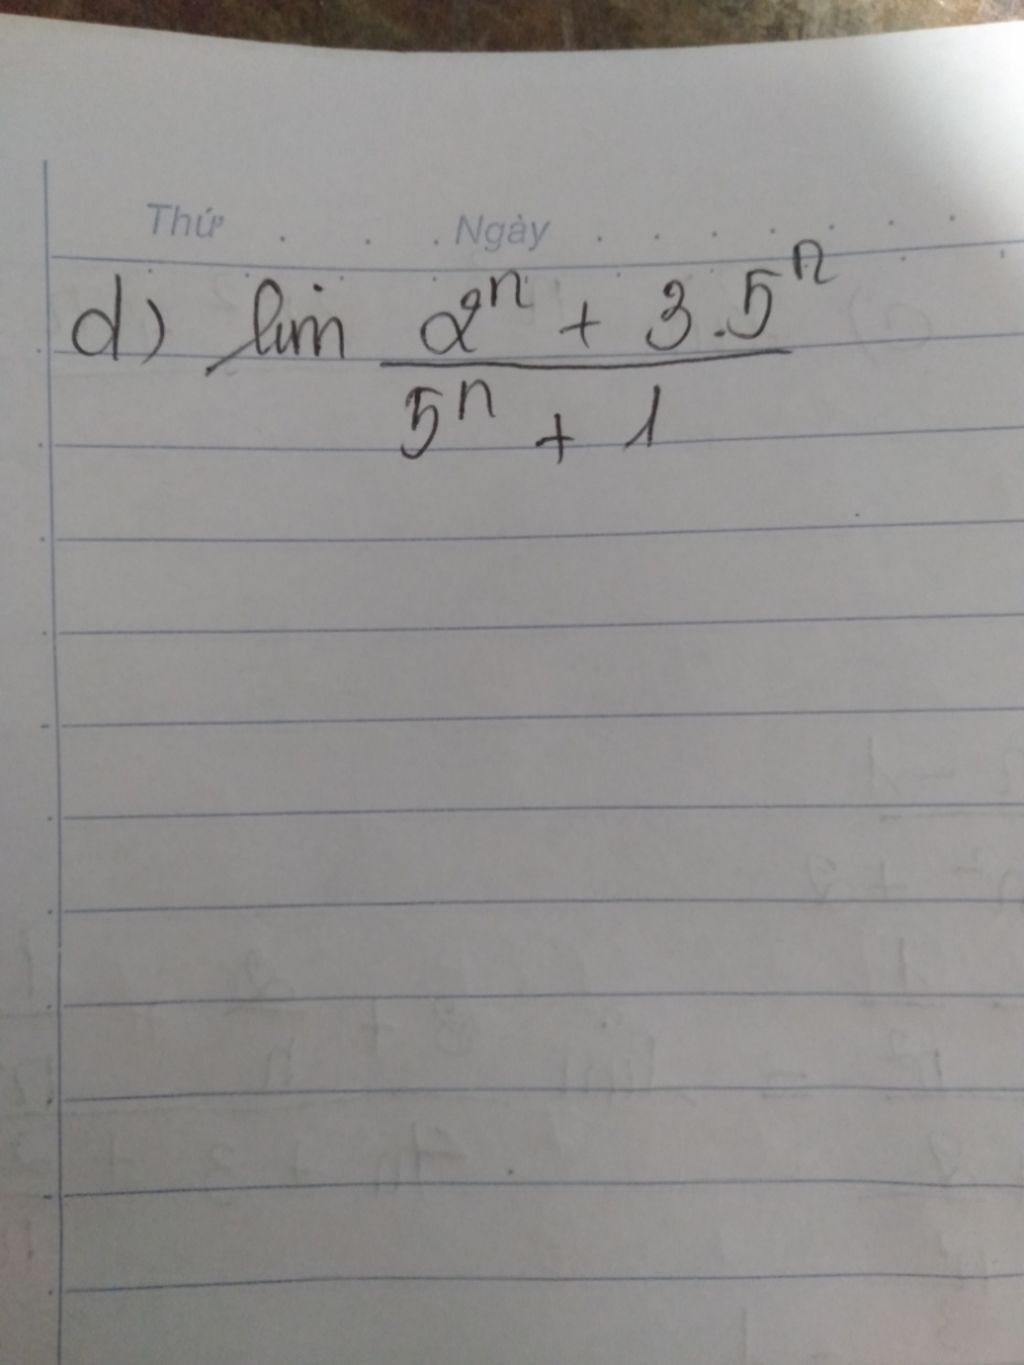 Thứ . . . Ngày . . . . . . .
d) lim \frac{2^n + 3.5^n}{5^n + 1}